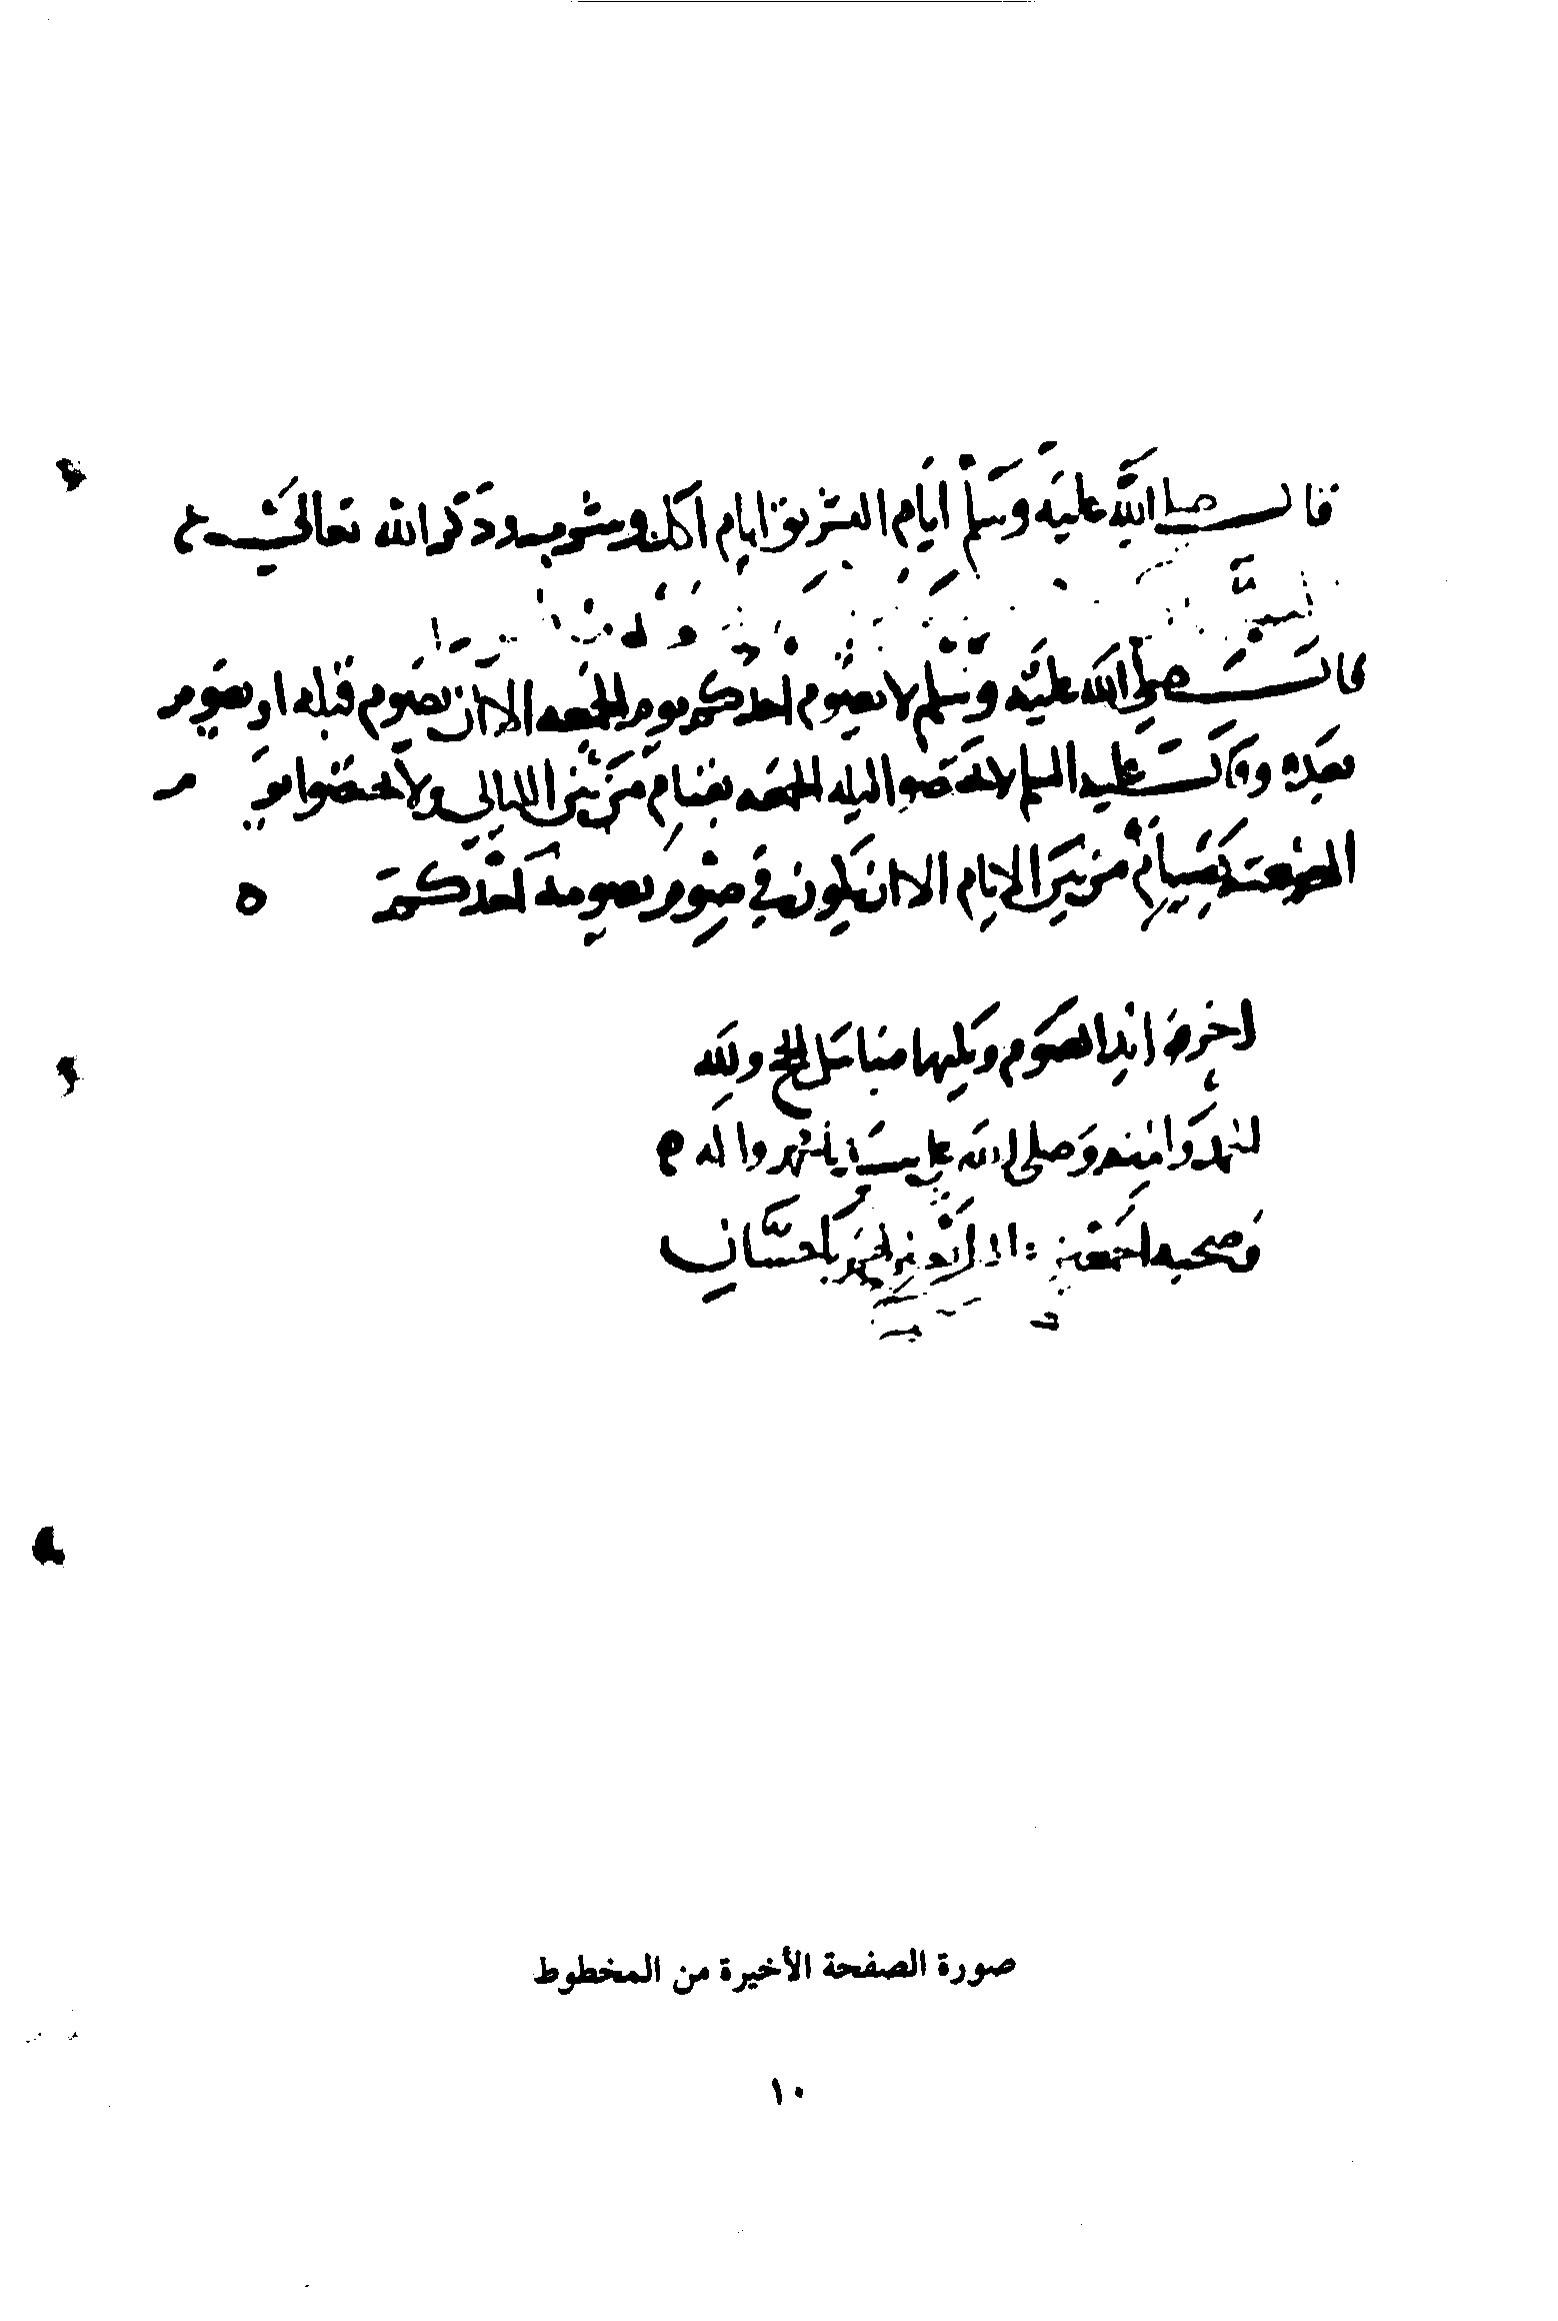 قال صلى الله عليه وسلم ايام التشريق ايام اكل وشرب وذكر الله تعالى
قال صلى الله عليه وسلم لا يصوم احدكم يوم الجمعه الا ان يصوم قبله او يصوم
بعده وقال عليه السلم لا تخصوا ليله الجمعه بقيام من بين الليالي ولا تخصوا يوم
الجمعة بصيام من بين الايام الا ان يكون في صوم يصومه احدكم ه
اخر ادب الصوم ويليها مناسك الحج ولله
الحمد والمنه وصلى الله على سيدنا محمد واله
وصحبه اجمعين لهم باحسان
صورة الصفحة الأخيرة من المخطوط
١٠